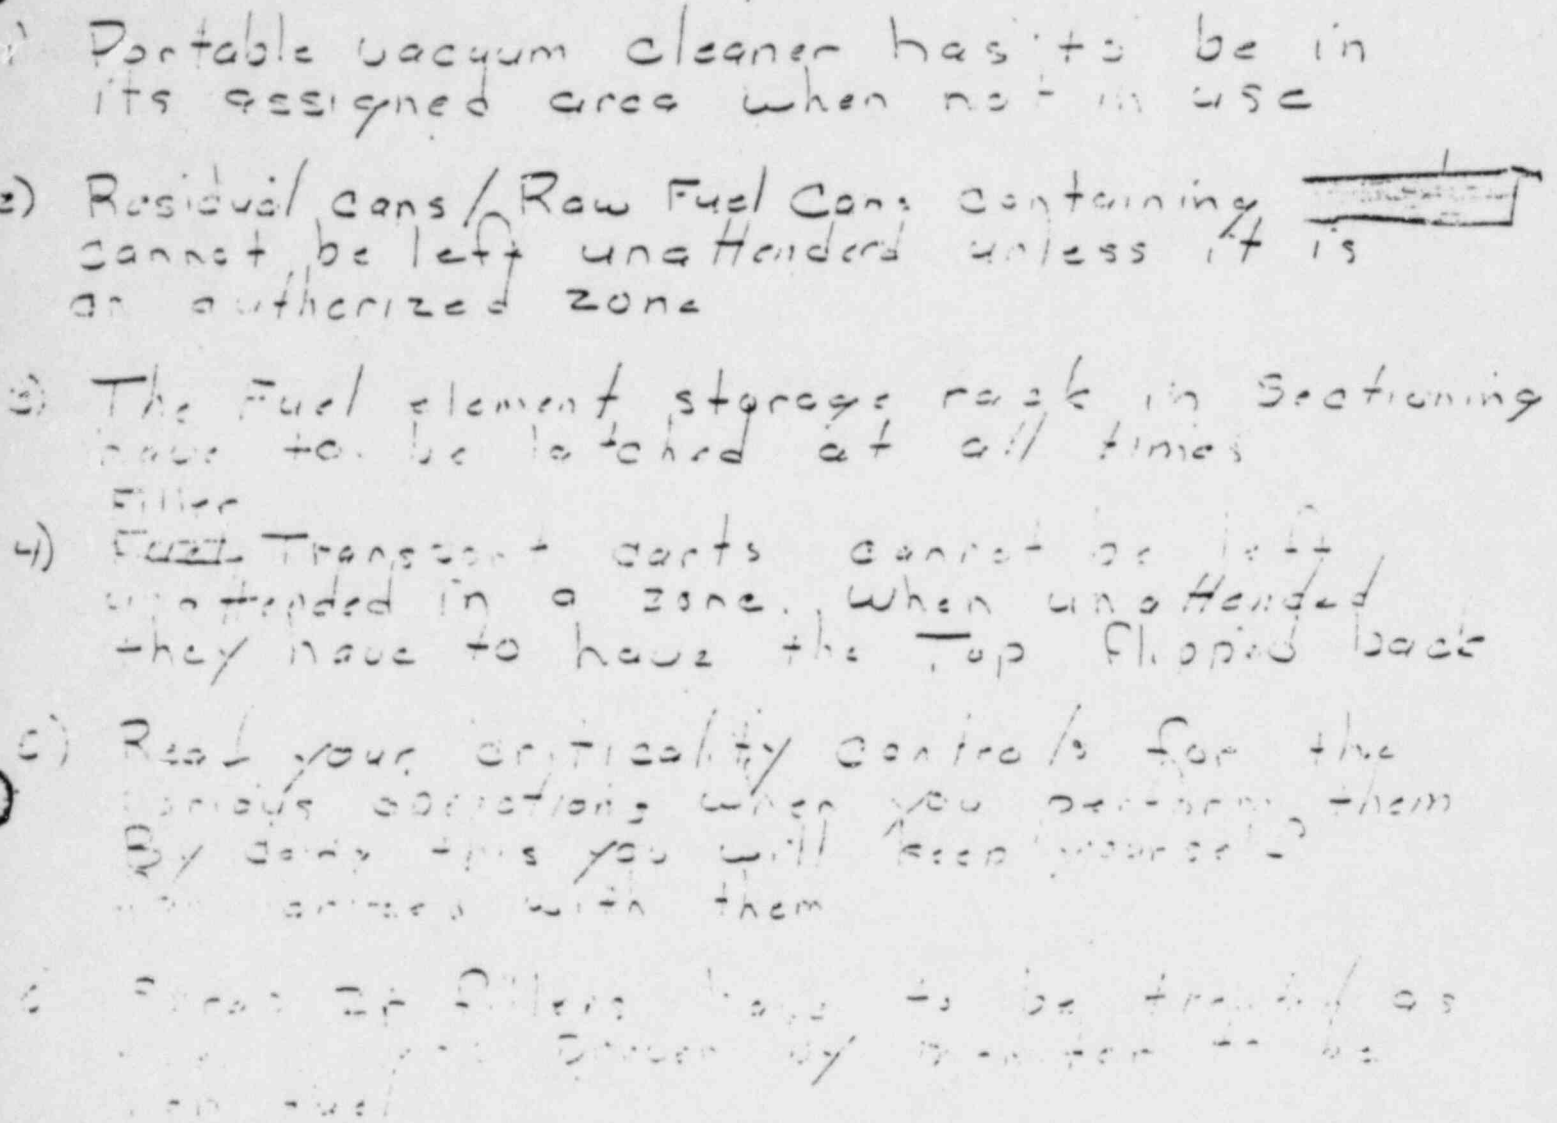 1) Portable vacuum cleaner has to be in
its assigned area when not in use
2) Residual cans/Raw Fuel Cans containing
cannot be left unattended unless it is
an authorized zone
3) The Fuel element storage rack in Sectioning
have to be latched at all times
Filler
4) Fuel Transport carts cannot be left
unattended in a zone. When unattended
they have to have the Top flipped back
5) Read your criticality controls for the
various operations when you perform them
By doing this you will keep yourself
with them
6 fillers have to be treated as
proven by monitor to be
non fuel